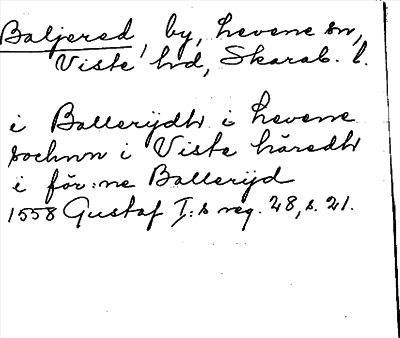 Baljered, by, Levene sn,
Viste hd, Skarab. l.
i Ballerijdh i Levene
sochnn i Viste häredh
i för:ne Ballerijd
1558 Gustaf I:s reg. 28, s. 21.